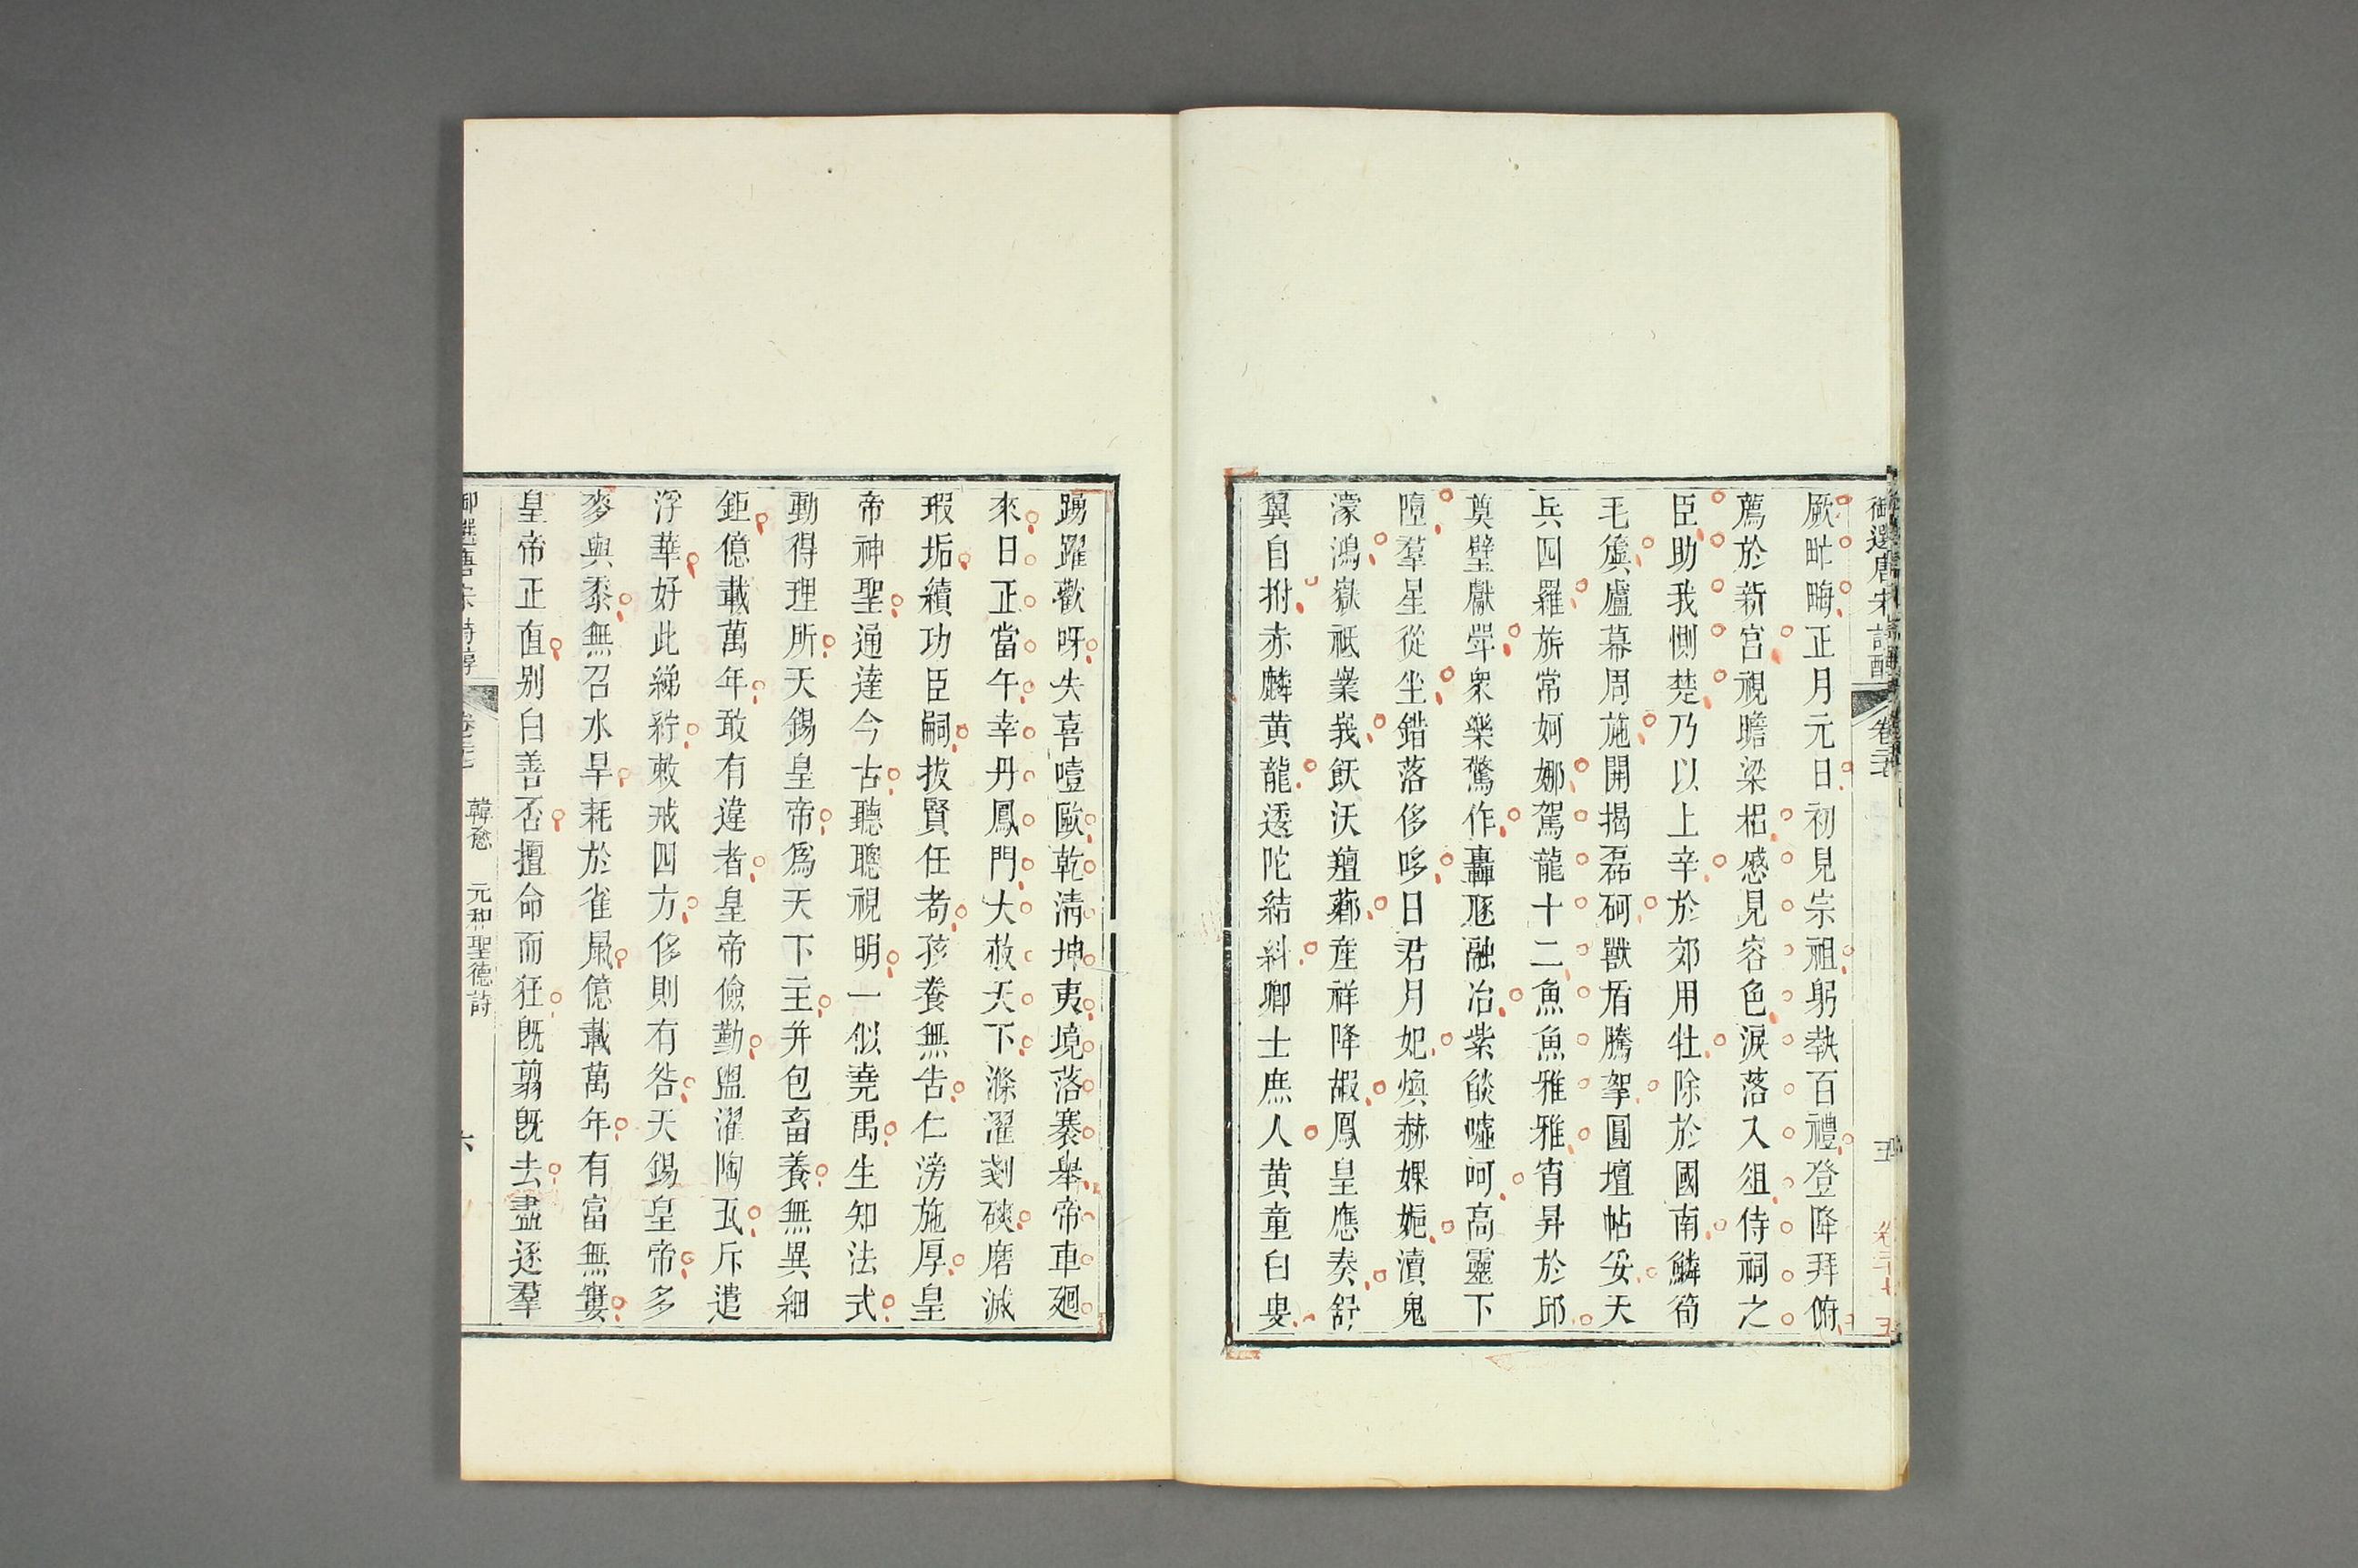 御選唐宋詩醇 卷二十七 五
厥畝畮正月元日初見宗祖躬執百禮登降拜俯
薦於新宮視瞻梁梠慼見容色淚落入俎侍祠之
臣助我惻楚乃以上辛於郊用牡除於國南鱗筍
毛簴廬幕周施開揭磊砢獸盾騰拏圓壇帖妥天
兵四羅旂常婀娜駕龍十二魚魚雅雅宵昇於邱
奠璧獻斝衆樂驚作轟豗融冶紫燄噓呵高靈下
墮羣星從坐錯落侈哆日君月妃煥赫婐婗瀆鬼
濛鴻嶽祗嶪峩飫沃羶薌產祥降嘏鳳皇應奏舒
翼自拊赤麟黄龍逶陀結糾卿士庶人黄童白叟
踴躍歡呀失喜噎歐乾清坤夷境落褰舉帝車廻
來日正當午幸丹鳳門大赦天下滌濯剗磢磨滅
瑕垢續功臣嗣拔賢任耇孩養無告仁滂施厚皇
帝神聖通達今古聽聰視明一似堯禹生知法式
動得理所天錫皇帝爲天下主并包畜養無異細
鉅億載萬年敢有違者皇帝儉勤盥濯陶瓦斥遣
浮華好此綈紵敕戒四方侈則有咎天錫皇帝多
麥與黍無召水旱耗於雀鼠億載萬年有富無窶
皇帝正直别白善否擅命而狂旣翦旣去盡逐羣
御選唐宋詩醇 卷二十七 韓愈 元和聖德詩 六